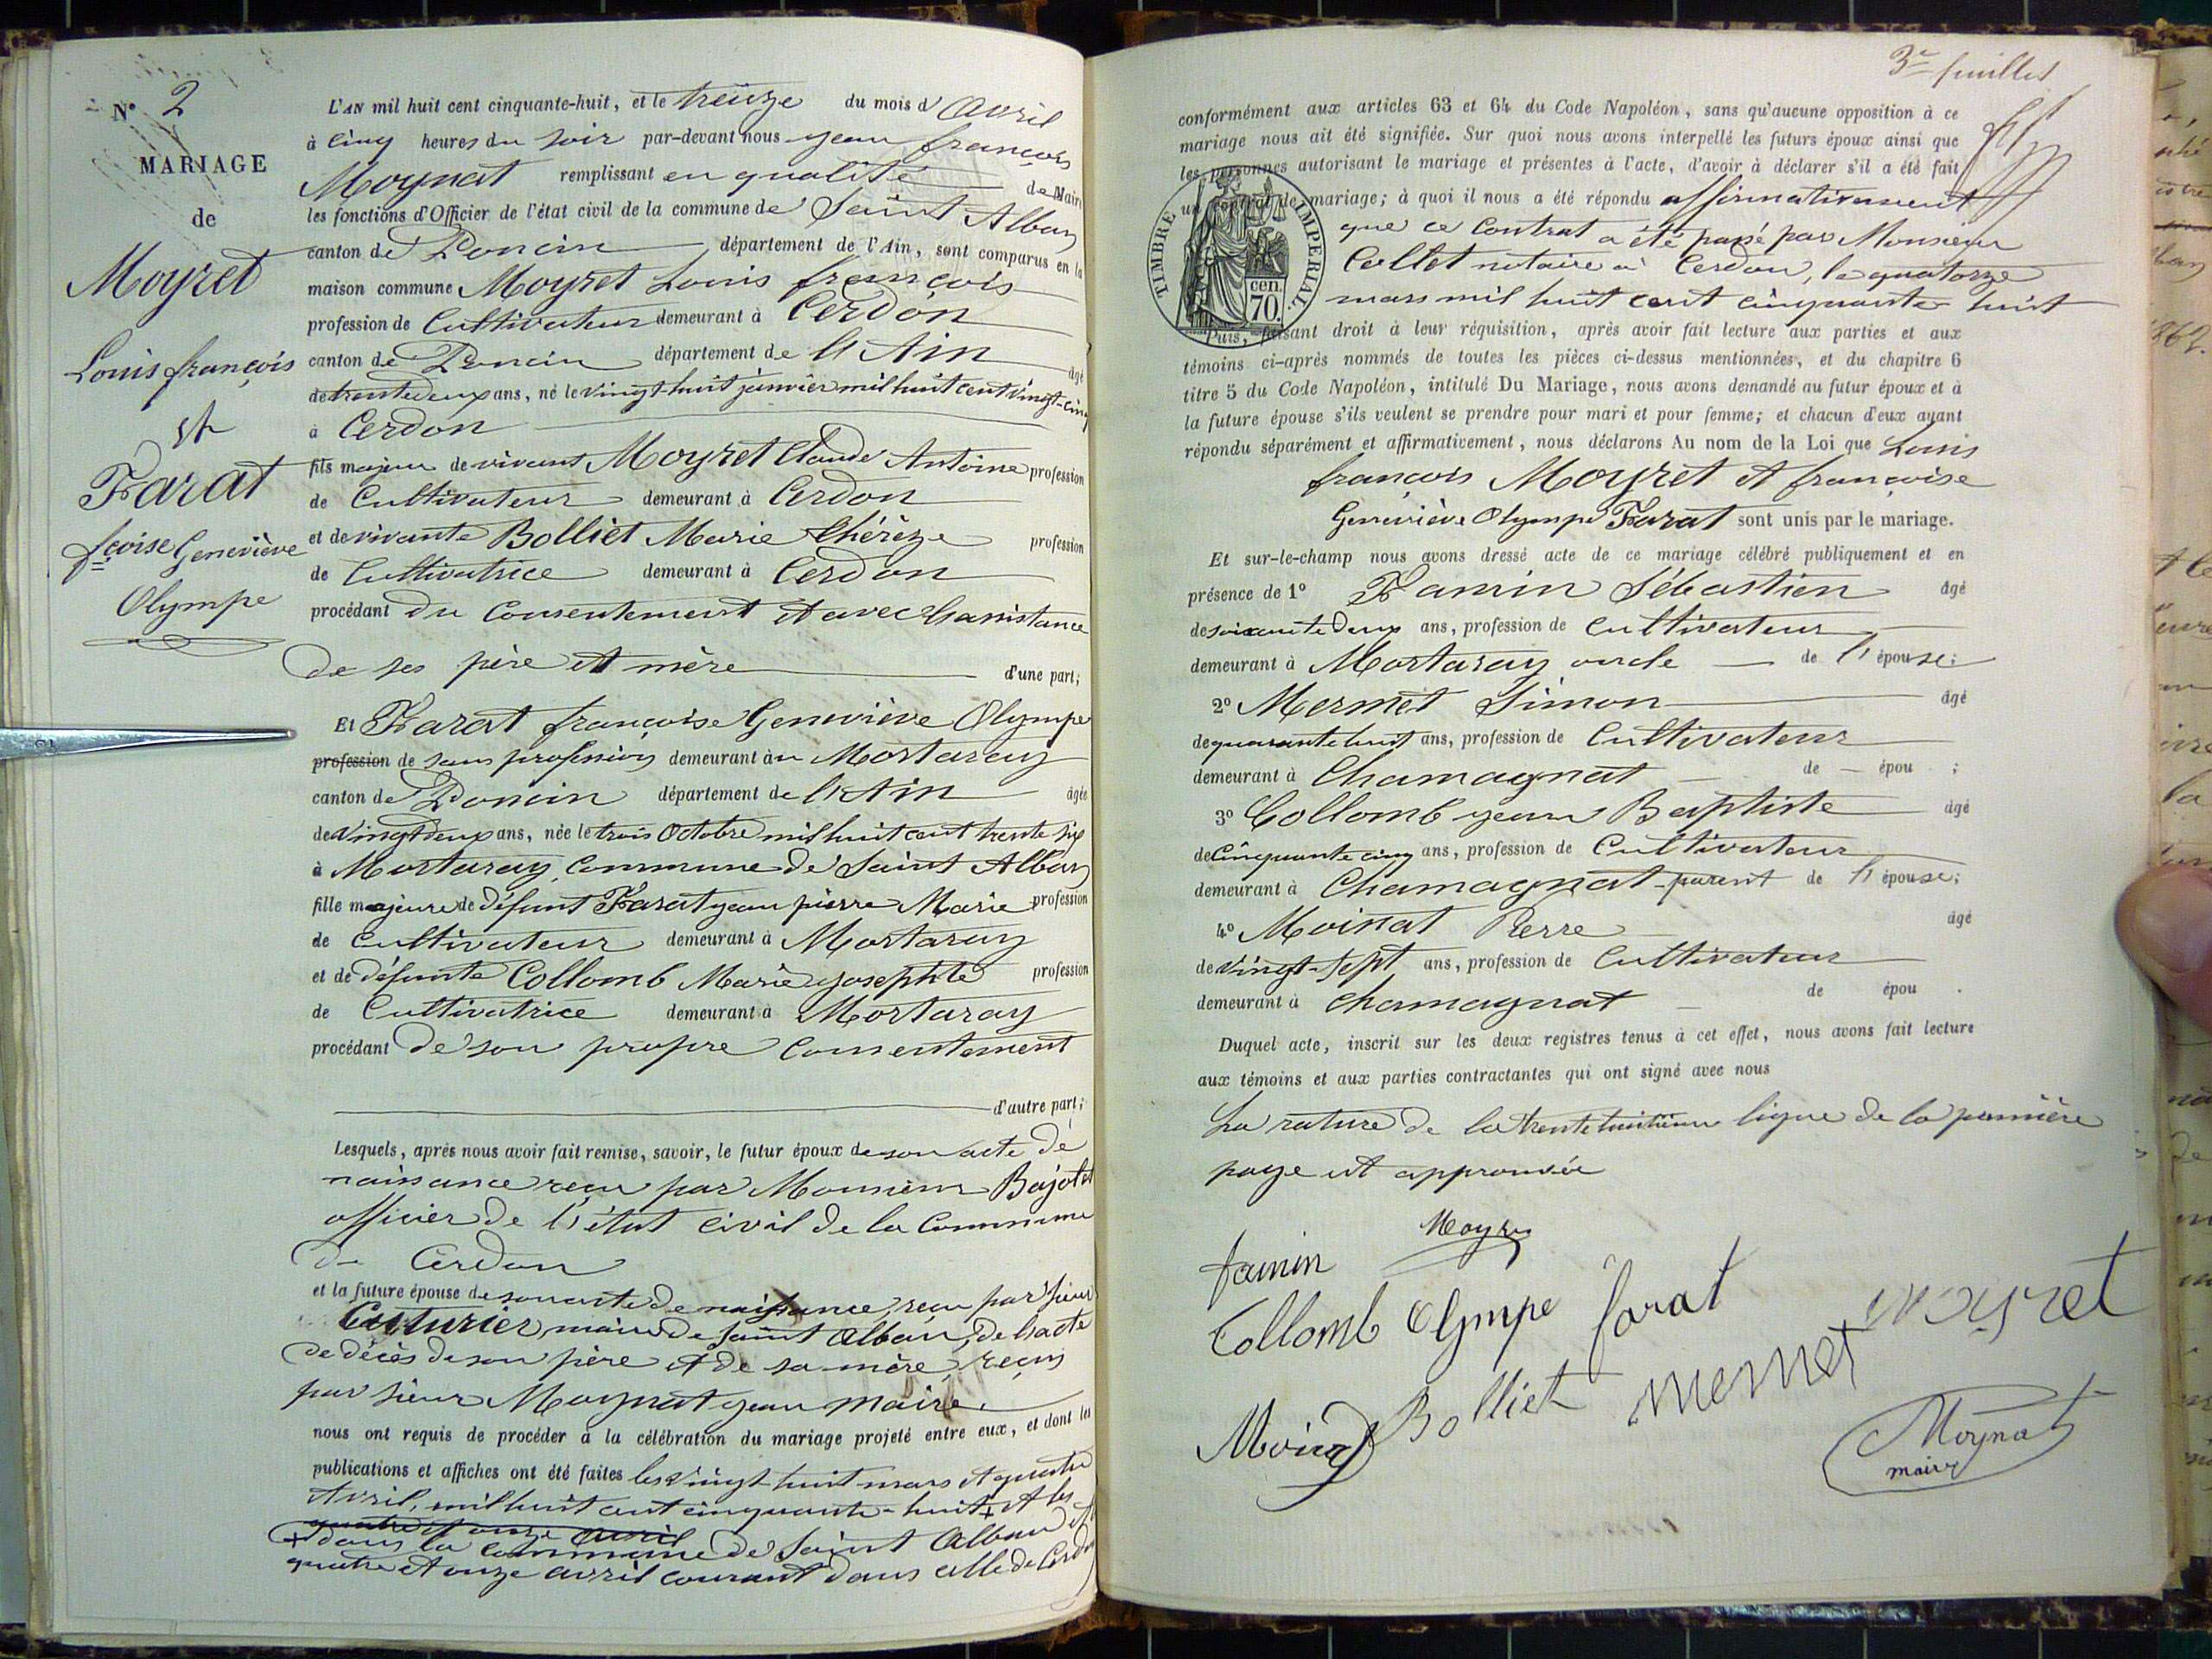 N° 2
MARIAGE
de
Moyret
Louis françois
et
Farat
fçoise Geneviève
Olympe
L'AN mil huit cent cinquante-huit, et le treize du mois d'Avril
à cinq heures du soir par-devant nous jean françois
Moynat remplissant en qualité de Maire
les fonctions d'Officier de l'état civil de la commune de Saint Alban
canton de Poncin département de l'Ain, sont comparus en la
maison commune Moyret Louis françois
profession de Cultivateur demeurant à Cerdon
canton de Poncin département de l'Ain âgé
de trente deux ans, né le vingt-huit janvier mil huit cent vingt-cinq
à Cerdon
fils majeur de vivant Moyret Claude Antoine profession
de Cultivateur demeurant à Cerdon
et de vivante Bolliet Marie thérèze profession
de Cultivatrice demeurant à Cerdon
procédant du consentement et avec l'assistance
de ses père et mère d'une part;
Et Farat françoise Geneviève Olympe
profession de sans profession demeurant à Mortaray
canton de Poncin département de l'Ain âgée
de vingt deux ans, née le trois Octobre mil huit cent trente six
à Mortaray, commune de Saint Alban
fille majeure de défunt Farat jean pierre Marie profession
de cultivateur demeurant à Mortaray
et de défunte Collomb Marie josephte profession
de Cultivatrice demeurant à Mortaray
procédant de son propre consentement
d'autre part;
Lesquels, après nous avoir fait remise, savoir, le futur époux de son acte de
naissance reçu par Monsieur Bajolet
officier de l'état civil de la Commune
de Cerdon
et la future épouse de son acte de naissance, reçu par sieur
Couturier maire de saint Alban, de l'acte
de décès de son père et de sa mère, reçus
par sieur Moynat jean maire.
nous ont requis de procéder à la célébration du mariage projeté entre eux, et dont les
publications et affiches ont été faites les vingt-huit mars et quatre
Avril, mil huit cent cinquante-huit + et les
quatre et onze avril
+ dans la commune de Saint Alban et
quatre et onze avril courant dans celle de Cerdon
3e feuillet
conformément aux articles 63 et 64 du Code Napoléon, sans qu'aucune opposition à ce
mariage nous ait été signifiée. Sur quoi nous avons interpellé les futurs époux ainsi que
les personnes autorisant le mariage et présentes à l'acte, d'avoir à déclarer s'il a été fait
un contrat de mariage; à quoi il nous a été répondu affirmativement
que ce contrat a été passé par Monsieur
Collet notaire à Cerdon, le quatorze
mars mil huit cent cinquante-huit
TIMBRE IMPÉRIAL.
cen.
70.
Puis, faisant droit à leur réquisition, après avoir fait lecture aux parties et aux
témoins ci-après nommés de toutes les pièces ci-dessus mentionnées, et du chapitre 6
titre 5 du Code Napoléon, intitulé Du Mariage, nous avons demandé au futur époux et à
la future épouse s'ils veulent se prendre pour mari et pour femme; et chacun d'eux ayant
répondu séparément et affirmativement, nous déclarons Au nom de la Loi que Louis
françois Moyret et françoise
Geneviève Olympe Farat sont unis par le mariage.
Et sur-le-champ nous avons dressé acte de ce mariage célébré publiquement et en
présence de 1° Famin Sébastien âgé
de soixante deux ans, profession de cultivateur
demeurant à Mortaray oncle de l'épouse;
2° Mermet Simon âgé
de quarante huit ans, profession de Cultivateur
demeurant à Chamagnat de épou ;
3° Collomb jean Baptiste âgé
de Cinquante cinq ans, profession de Cultivateur
demeurant à Chamagnat parent de l'épouse;
4° Moinat Pierre âgé
de vingt-sept ans, profession de Cultivateur
demeurant à chamagnat de épou .
Duquel acte, inscrit sur les deux registres tenus à cet effet, nous avons fait lecture
aux témoins et aux parties contractantes qui ont signé avec nous
La rature de la trente huitième ligne de la première
page est approuvée
Moyret
famin
Collomb Olympe farat moyret
Moinat Bolliet mermet
Moynat
maire